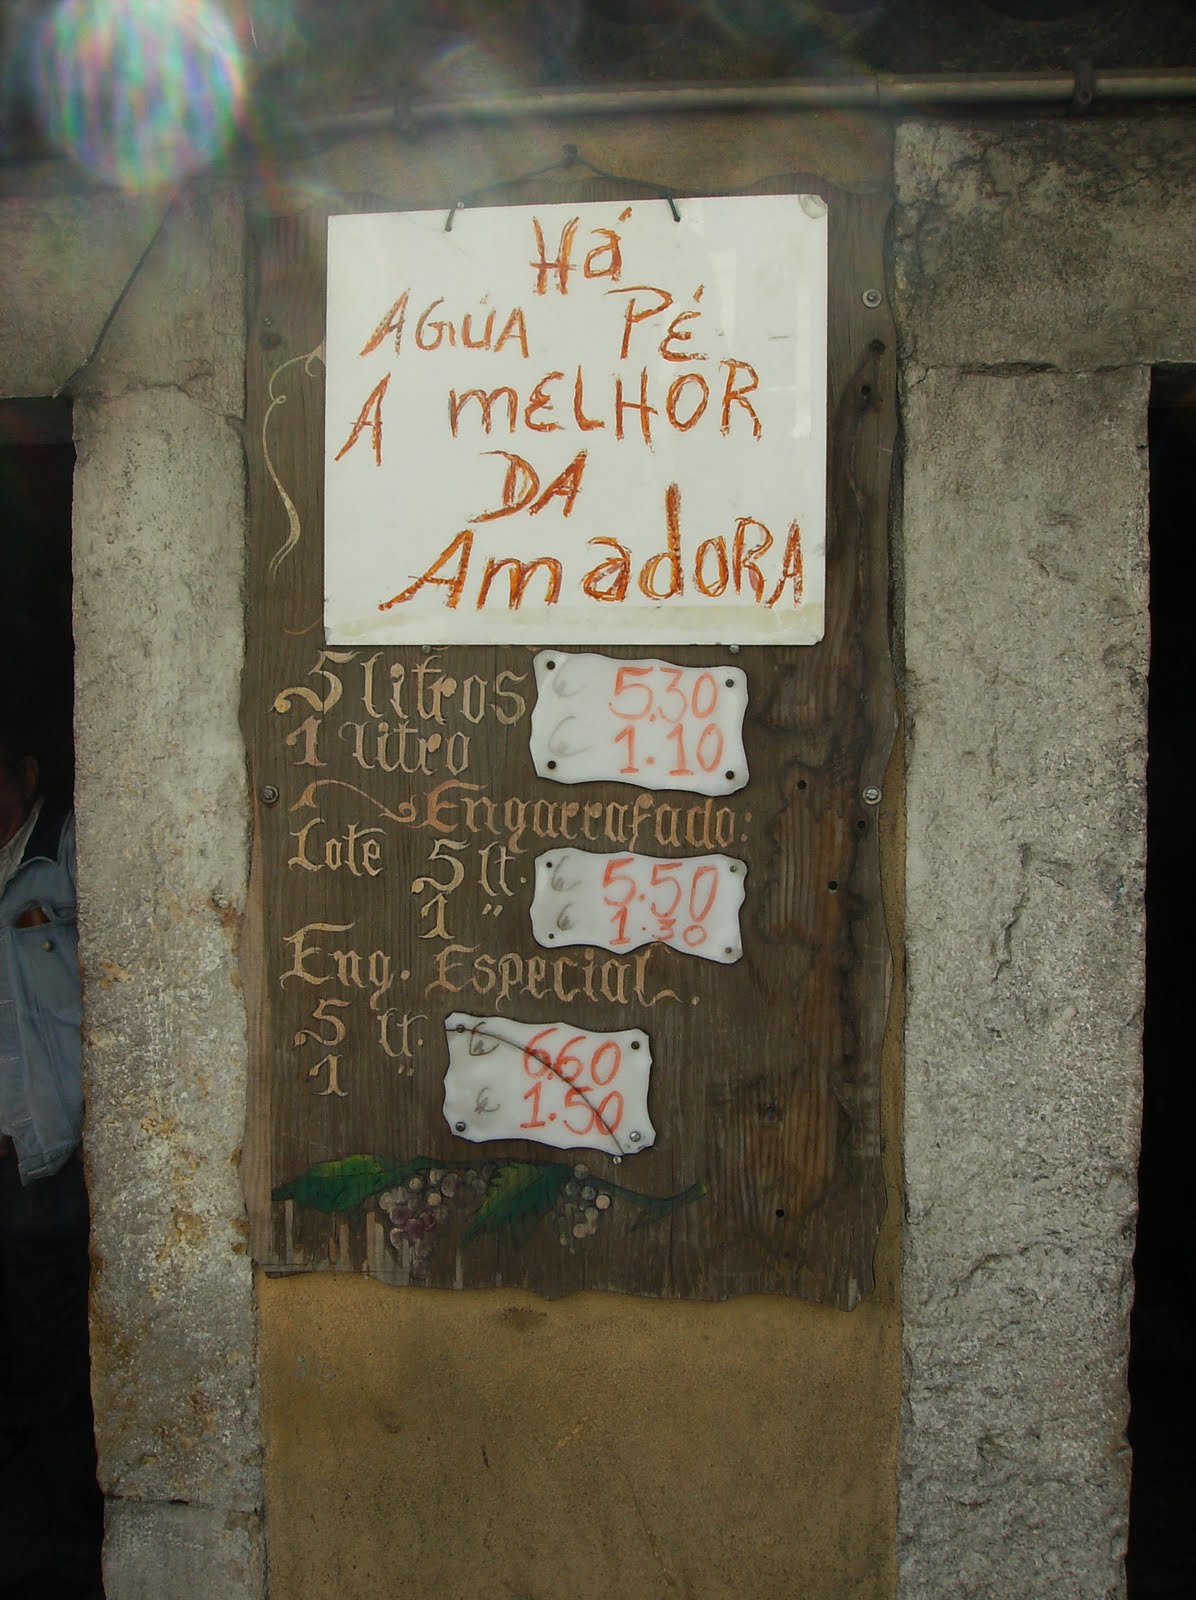 Há
AGÚA PÉ
A MELHOR
DA
AmadoRA
5 litros € 5.30
1 litro € 1.10
Engarrafado:
Lote 5 lt. € 5.50
1 " € 1.30
Eng. Especial.
5 lt. € 6.60
1 " € 1.50